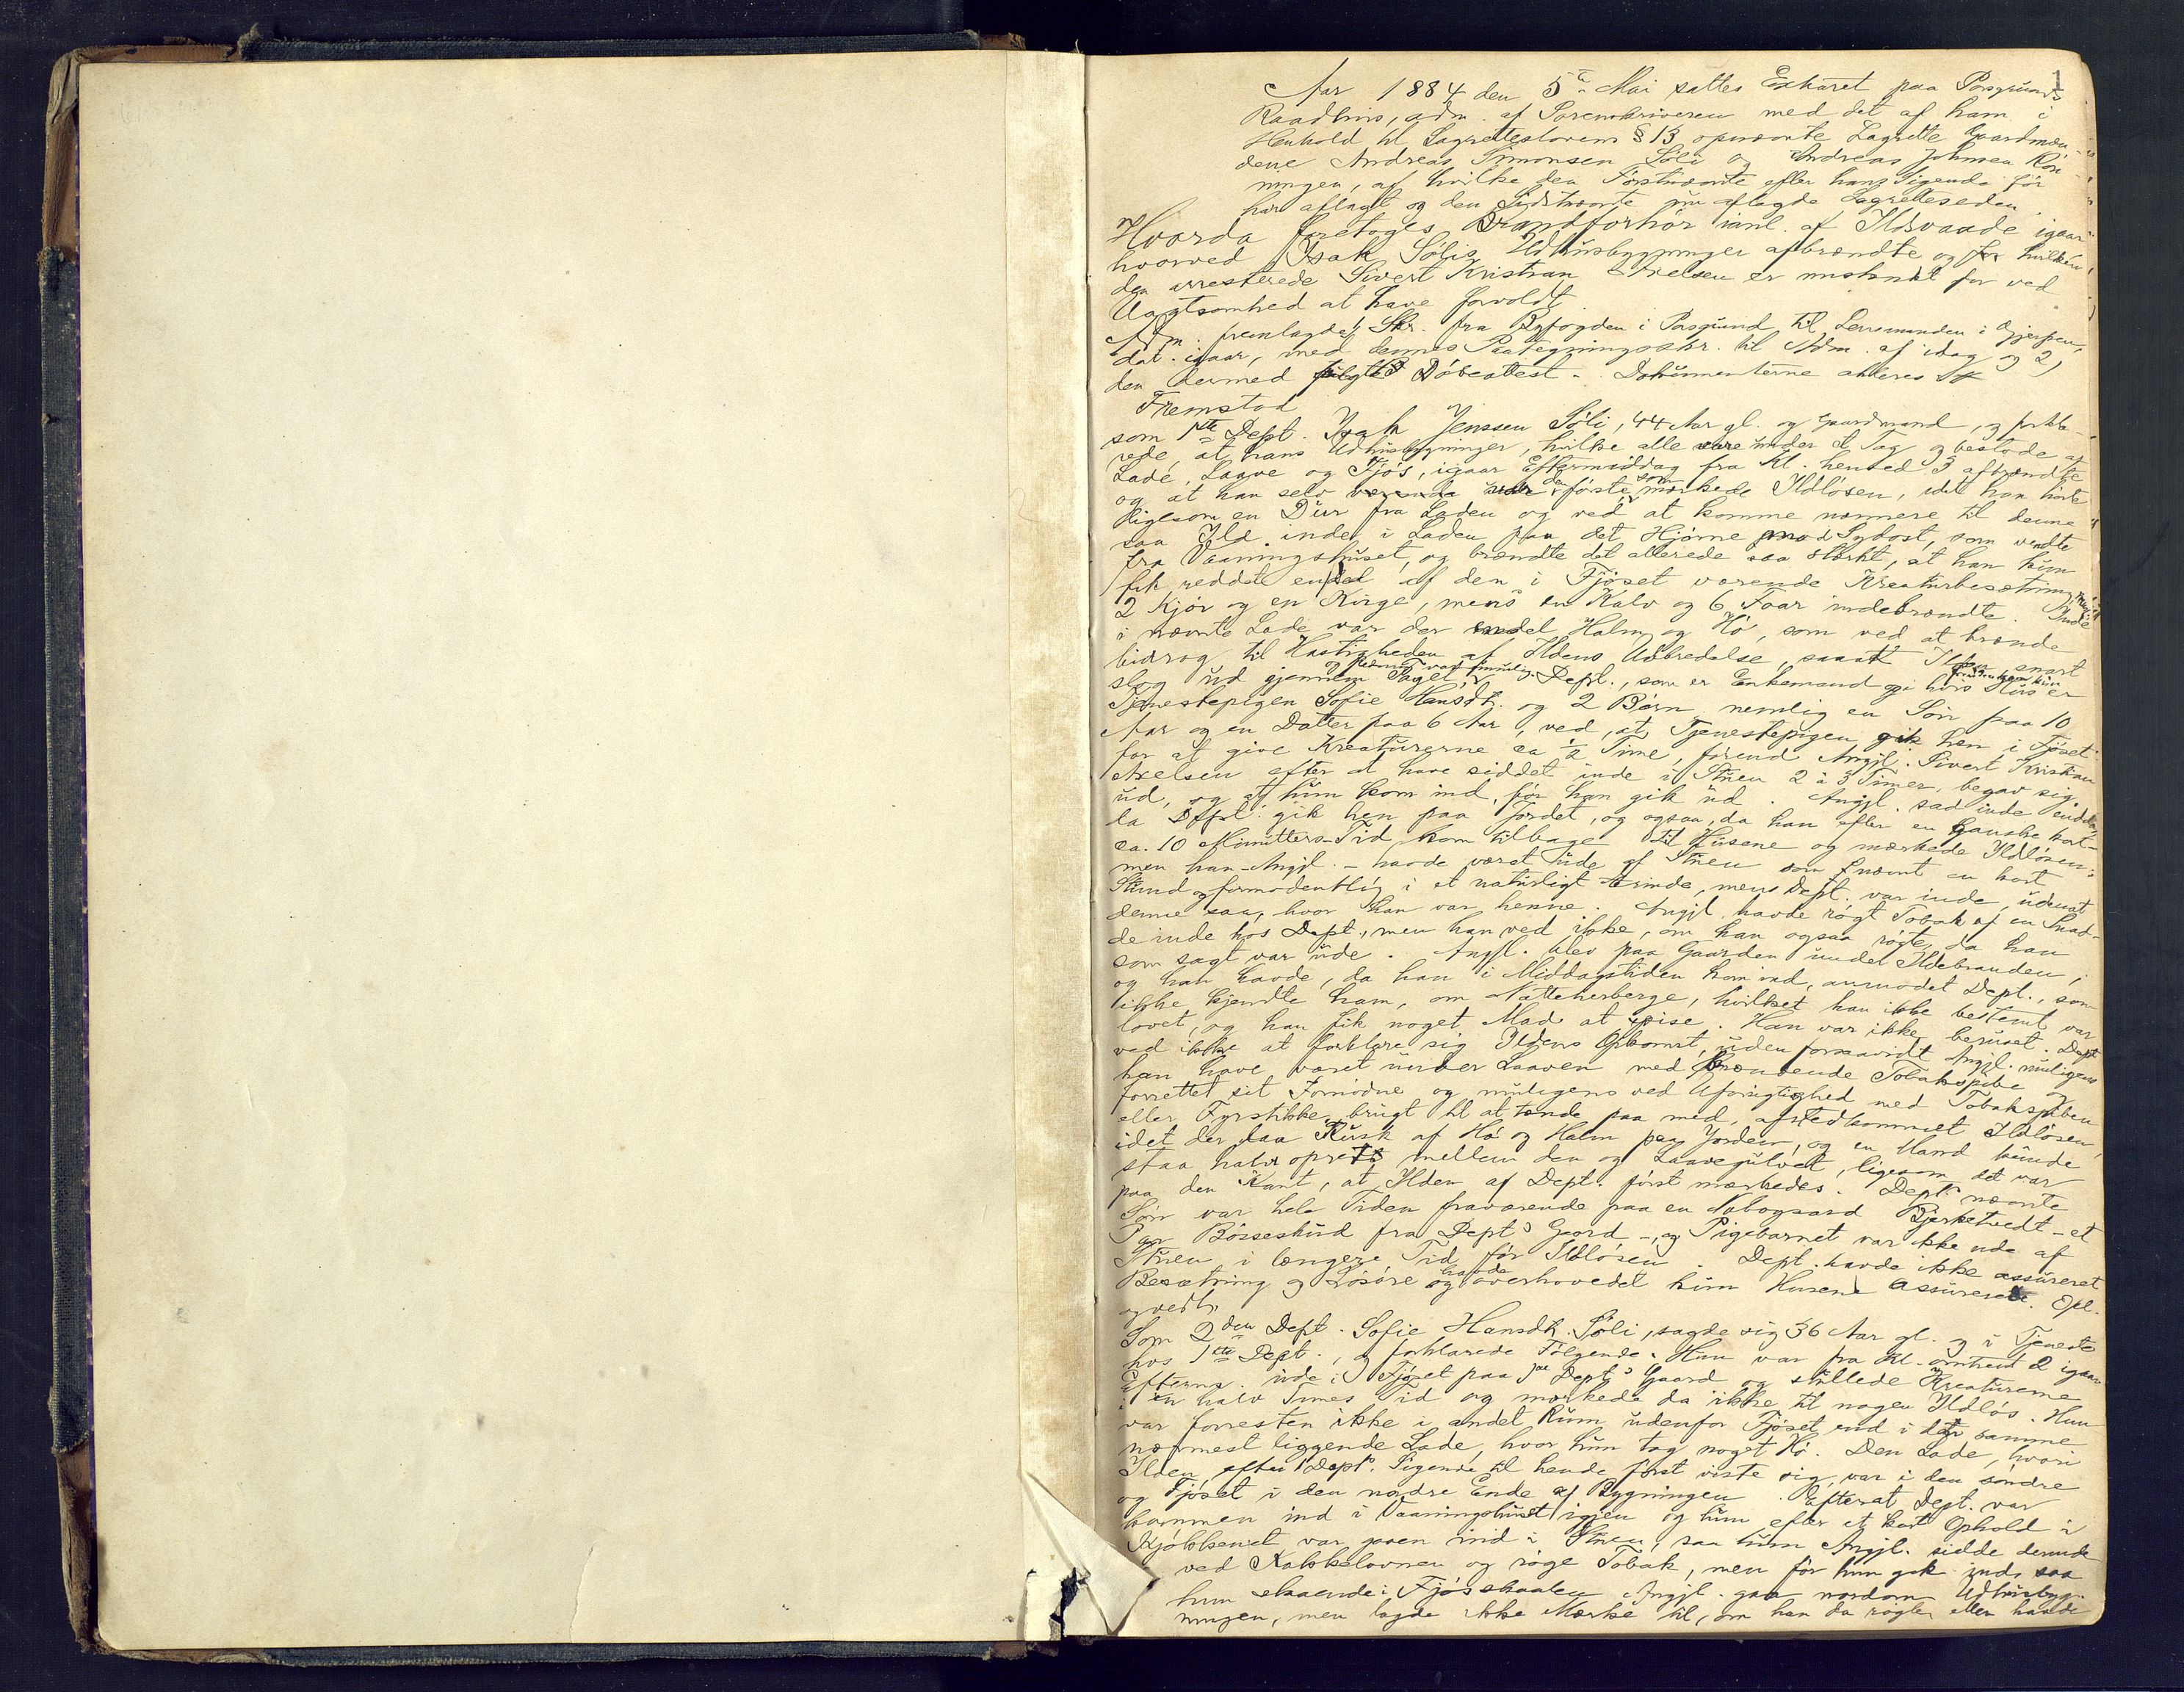 1
Aar 1884 den 5te Mai sattes Extraret paa Porsgrunds
Raadhus, adm. af Sorenskriveren med det af ham i
Henhold til Lagretteslovens § 13 opnævnte Lagrette Gaardmæn-
dene Andreas Simonsen Söli og Andreas Johnsen
ningen, af hvilke den Förstnævnte efter hans Sigende för
har aflagt og den Sidstnævnte nu aflagde Lagretteseden.
Hvorda foretoges Brandforhör i anl. af Ildsvaade igaar
hvorved Isak Sölis Udhusbygninger afbrændte og for hvilken
den arresterede Sivert Kristian Axelsen er mistænkt for ved
Uagtsomhed at have forvoldt.
Adm. fremlagde 1, Skr. fra Byfogden i Porsgrund til Lensmanden i Gjerpen,
dat. igaar, med dennes Paategningsskr. til Adm. af idag og 2,
den dermed fulgte Döbeattest. Dokumenterne
Fremstod
som 1ste Dept. Isak Jenssen Söli, 44 Aar gl. og Gaardmand, og forkla-
rede, at hans Udhusbygninger, hvilke alle vare under et Tag og bestode af
Lade, Laave og Fjös, igaar Eftermiddag fra Kl. henved 3 afbrændte
og at han selv den förste som mærkede Ildlösen, idet han hörte
ligesom en Dur fra Laden og ved at komme nærmere til denne
saa Ild inde i Laden paa det Hjörne mod Sydost, som vendte
fra Vaaningshuset, og brændte det allerede saa stærkt, at han kun
fik reddet endel af den i Fjöset værende Kreaturbesætning,
2 Kjör og en Kvige, mens en Kalv og 6 Faar indebrændte. Inde
i nævnte Lade var der endel Halm og Hö, som ved at brænde
bidrog til Hastigheden af Ildens Udbredelse, saaat Ilden snart
slog ud gjennem Taget, og Redning var umulig. Dept., som er Enkemand og i hvis Hus er
Tjenestepigen Sofie Hansdtr. og 2 Börn, nemlig en Sön paa 10
Aar og en Datter paa 6 Aar, ved, at Tjenestepigen gik hen i Fjöset
for at give Kreaturerne ca ½ Time, förend Angjl. Sivert Kristian
Axelsen efter at have siddet inde i Stuen 2 à 3 Timer, begav sig
ud, og at hun kom ind, för han gik ud. Angjl. sad inde endda,
da Dept. gik hen paa Jordet, og ogsaa, da han efter en ganske kort –
ca. 10 Minutters – Tid kom tilbage til Husene og mærkede Ildlösen;
men han – Angjl. – havde været ude af Stuen som nævnt en kort
Stund og formodentlig i et naturligt Ærinde, mens Dept. var inde, udenat
denne saa, hvor han var henne. Angjl. havde rögt Tobak af en Snad-
de inde hos Dept., men han ved ikke, om han ogsaa rögte, da han
som sagt var ude. Angjl. blev paa Gaarden under Ildebranden,
og han havde, da han i Middagstiden kom ind, anmodet Dept., som
ikke kjendte ham, om Natteherberge, hvilket han ikke bestemt var
lovet, og han fik noget Mad at spise. Han var ikke beruset. Dept.
ved ikke at forklare sig Ildens Opkomst, uden forsaavidt Angjl. muligens
kan have været under Laaven med brændende Tobakspibe og
forrettet sit Fornödne og muligens ved Uforsigtighed med Tobakspiben
eller Fyrstikke, brugt til at tænde paa med, afstedkommet Ildlösen,
idet der laa Rusk af Hö og Halm paa Jorden, og en Mand kunde
staa halv opreist mellem den og Laavegulvet, ligesom det var
paa den Kant, at Ilden af Dept. först mærkedes. Depts nævnte
Sön var hele Tiden fraværende paa en Nabogaard Bjerketvedt – et
Par Bösseskud fra Depts Gaard –, og Pigebarnet var ikke ude af
Stuen i længere Tid för Ildlösen. Dept. havde ikke assureret
Besætning og Lösöre og havde overhovedet kun Husene assureret. Opl.
og vedtr.
Som 2den Dept. Sofie Hansdtr. Söli, sagde sig 36 Aar gl. og i Tjeneste
hos 1ste Dept., og forklarede Fölgende: Hun var fra Kl. omtrent 2 igaar
Efterm. inde i Fjöset paa 1ste Depts Gaard og stillede Kreaturerne
i en halv Times Tid og mærkede da ikke til nogen Ildlös. Hun
var forresten ikke i andet Rum udenfor Fjöset end i den samme
nærmest liggende Lade, hvor hun tog noget Hö. Den Lade, hvori
Ilden efter 1 Depts. Sigende til hende först viste sig, var i den söndre
og Fjöset i den nordre Ende af Bygningen. Efterat Dept. var
kommen ind i Vaaningshuset igjen og hun efter et kort Ophold i
Kjökkenet var gaaen ind i Stuen, saa hun Angjl. sidde derinde
ved Kakkelovnen og röge Tobak, men för hun gik ind, saa
hun staaende i Fjösskaalen Angjl. gaa nordom Udhusbyg-
ningen, men lagde ikke Mærke til, om han da rögte eller havde